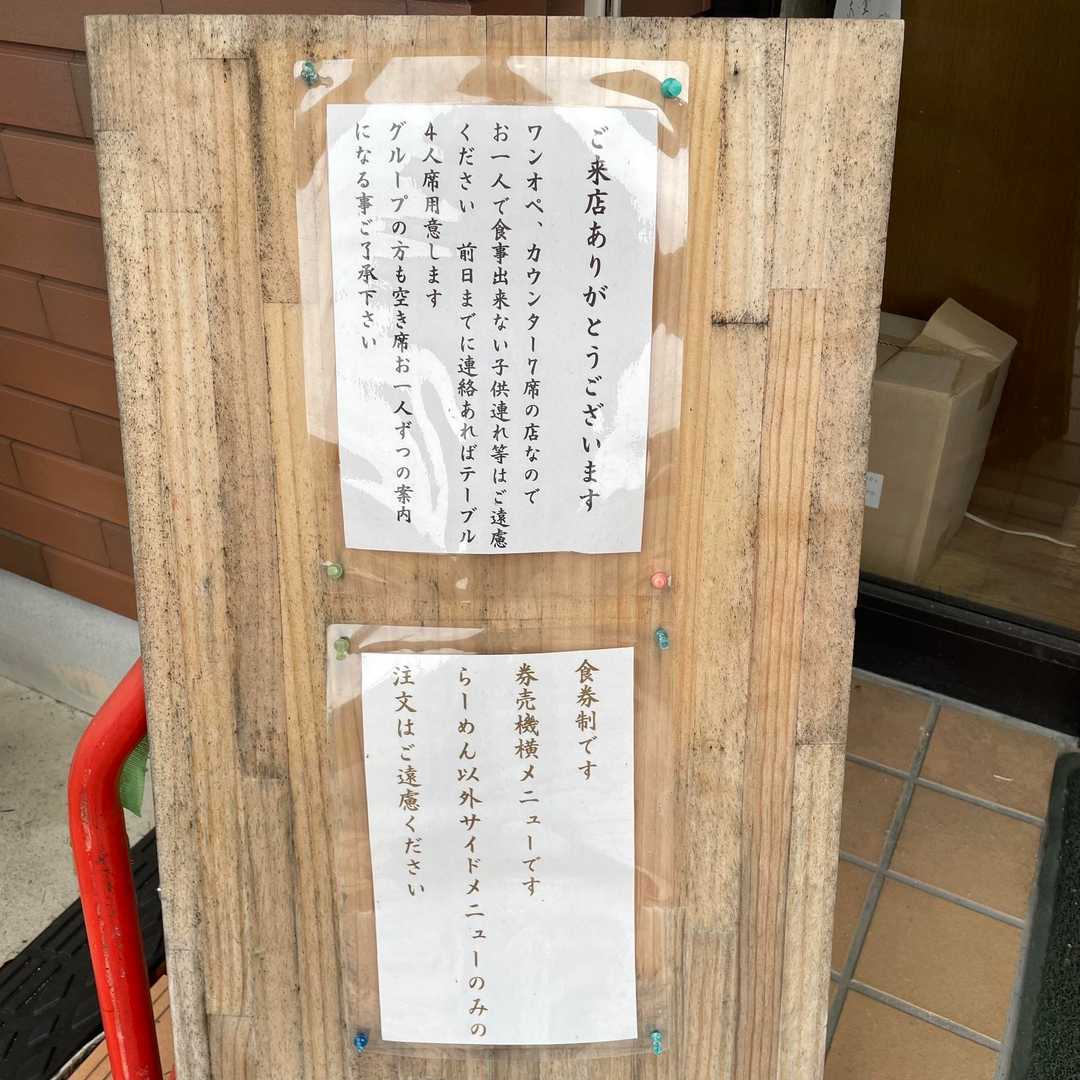 ご来店ありがとうございます
ワンオペ、カウンター7席の店なので
お一人で食事出来ない子供連れ等はご遠慮
ください　前日までに連絡あればテーブル
4人席用意します
グループの方も空き席お一人ずつの案内
になる事ご了承下さい
食券制です
券売機横メニューです
らーめん以外サイドメニューのみの
注文はご遠慮ください